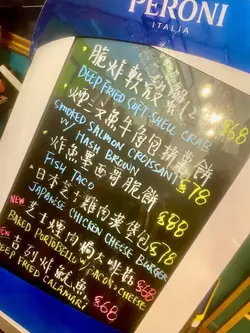 PERONI
ITALIA
脆炸軟殼蟹(2
DEEP FRIED SOFT SHELL CRAB
煙三文魚牛角包拼薯餅 $78
SMOKED SALMON CROISSANT
W/ HASH BROWN
炸魚墨西哥脆餅 $88
FISH TACO
日本芝士雞肉漢堡包 $78
JAPANESE CHICKEN CHEESE BURGER
NEW 芝士煙肉焗大 $68
BAKED PORTOBELLO W/ BACON & CHEESE
NEW 吉列炸魷魚 $68
DEEP FRIED CALAMARI